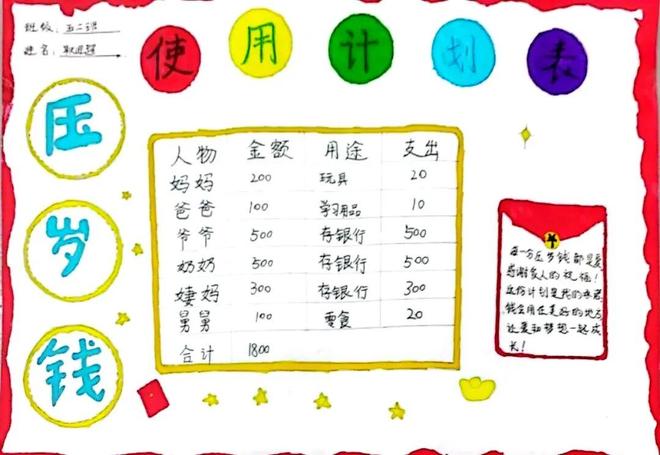 班级：五二班
姓名：
使用计划表
压岁钱
人物 金额 用途 支出
妈妈 200 玩具 20
爸爸 100 学习用品 10
爷爷 500 存银行 500
奶奶 500 存银行 500
婕妈 300 存银行 300
男男 100 零食 20
合计 1800
每一分压岁钱都是爱
感谢家人的祝福！
这份计划是我的
钱会用在更好的地方
让爱和梦想一起成
长！